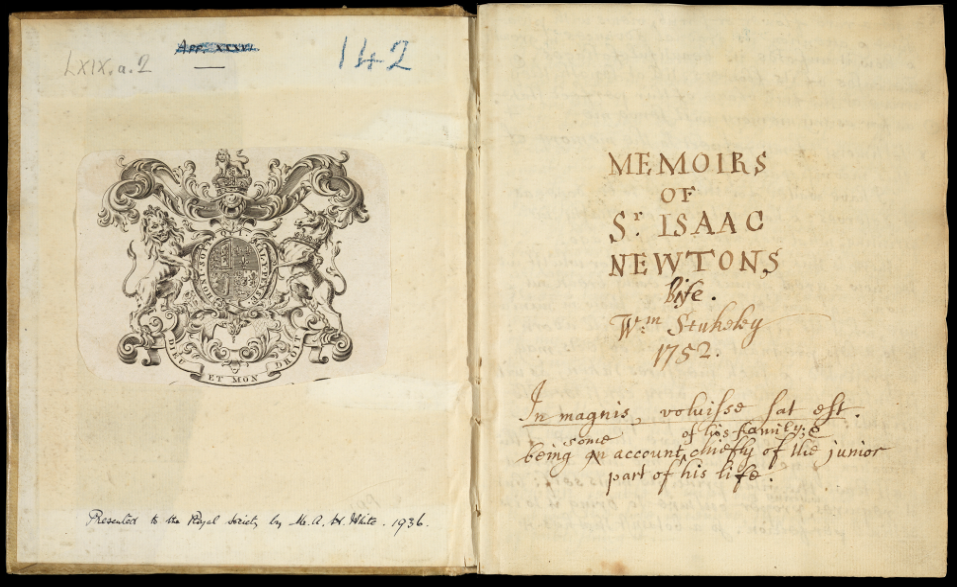 LXIX.a.2
App. XXXVI.
142
HONI·SOIT
MAL Y PENSE
DIEU ET MON DROIT
Presented to the Royal Society by Mr. A. H. White. 1936.
MEMOIRS
OF
Sʳ. ISAAC
NEWTONS
life.
Wᵐ. Stukeley
1752.
In magnis, voluisse sat est.
some of his family; &
being an account, chiefly of the junior
part of his life.